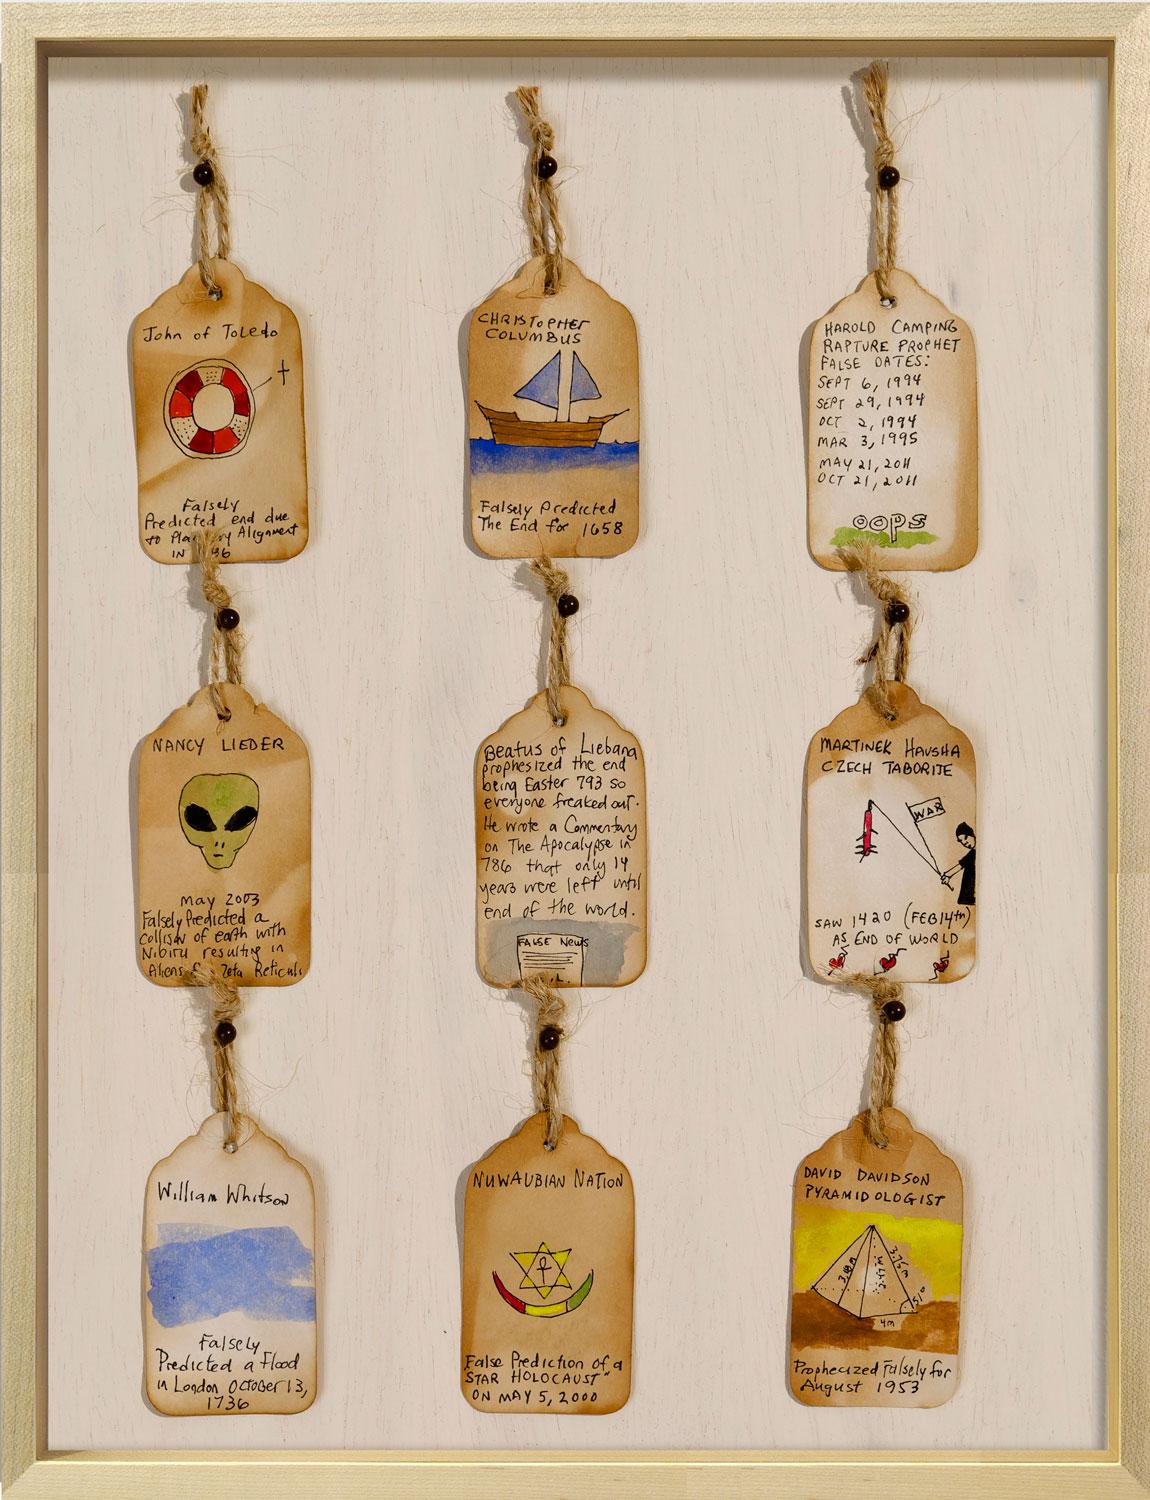 John of Toledo
Falsely
Predicted end due
to Alignment
IN
CHRISTOPHER
COLUMBUS
Falsely Predicted
The End for 1658
HAROLD CAMPING
RAPTURE PROPHET
FALSE DATES:
SEPT 6, 1994
SEPT 29, 1994
OCT 2, 1994
MAR 3, 1995
MAY 21, 2011
OCT 21, 2011
OOPS
NANCY LIEDER
May 2003
Falsely Predicted a
collison of earth with
Nibiru resulting in
Aliens Zeta Reticuli
Beatus of Liebana
prophesized the end
being Easter 793 so
everyone freaked out.
He wrote a Commentary
on The Apocalypse in
786 that only 14
years were left until
end of the world.
FALSE News
MARTINEK HAUSHA
CZECH TABORITE
WAR
SAW 1420 (FEB 14th)
AS END OF WORLD
William Whitson
Falsely
Predicted a Flood
in London OCTOBER 13,
1736
NUWAUBIAN NATION
False Prediction of a
STAR HOLOCAUST"
ON MAY 5, 2000
DAVID DAVIDSON
PYRAMIDOLOGIST
4m
Prophecized Falsely for
August 1953